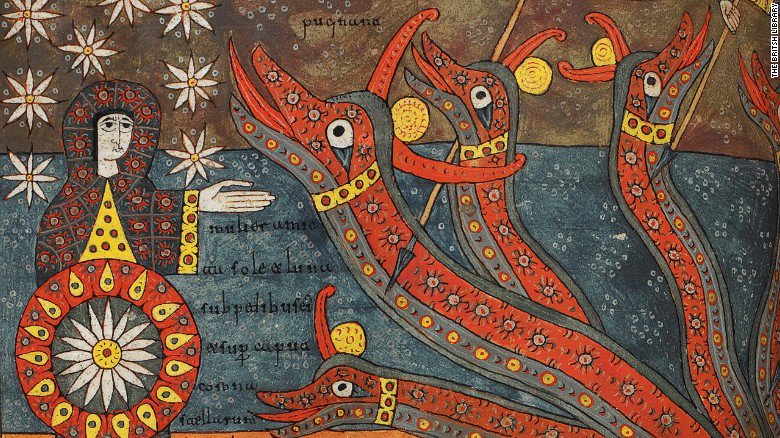 pugnant
mulier amic
ta sole & luna
sub pedibus ei
& sup caput
corona
stellarum
THE BRITISH LIBRARY